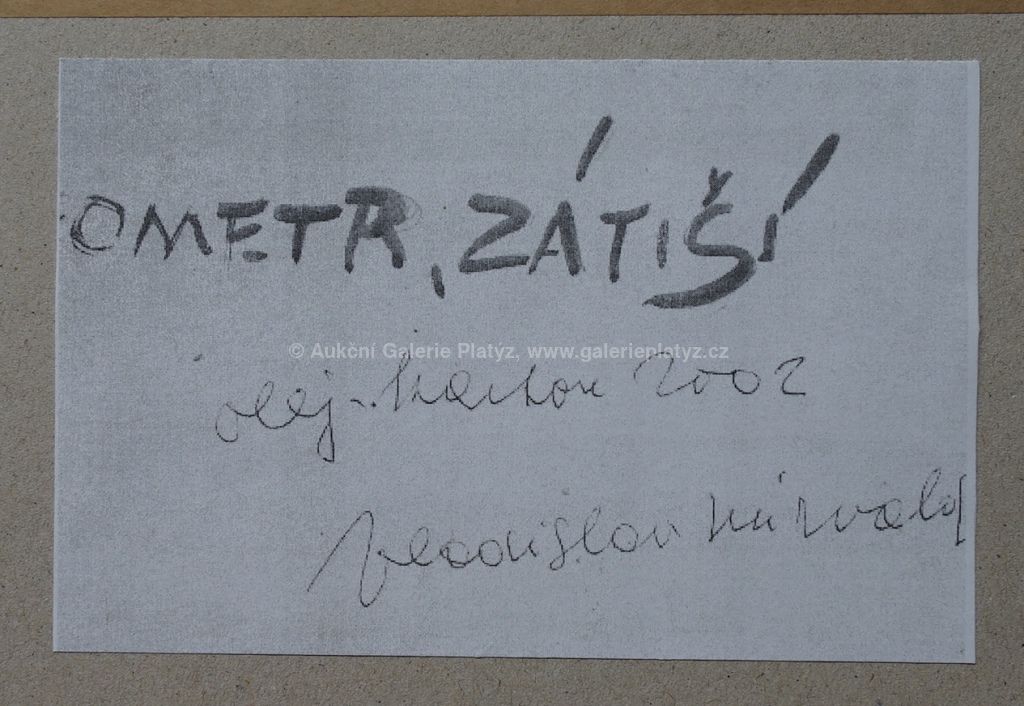 OMETR, ZÁTIŠÍ
© Aukční Galerie Platýz, www.galerieplatyz.cz
olej-karton 2002
Vladislav Mirvald